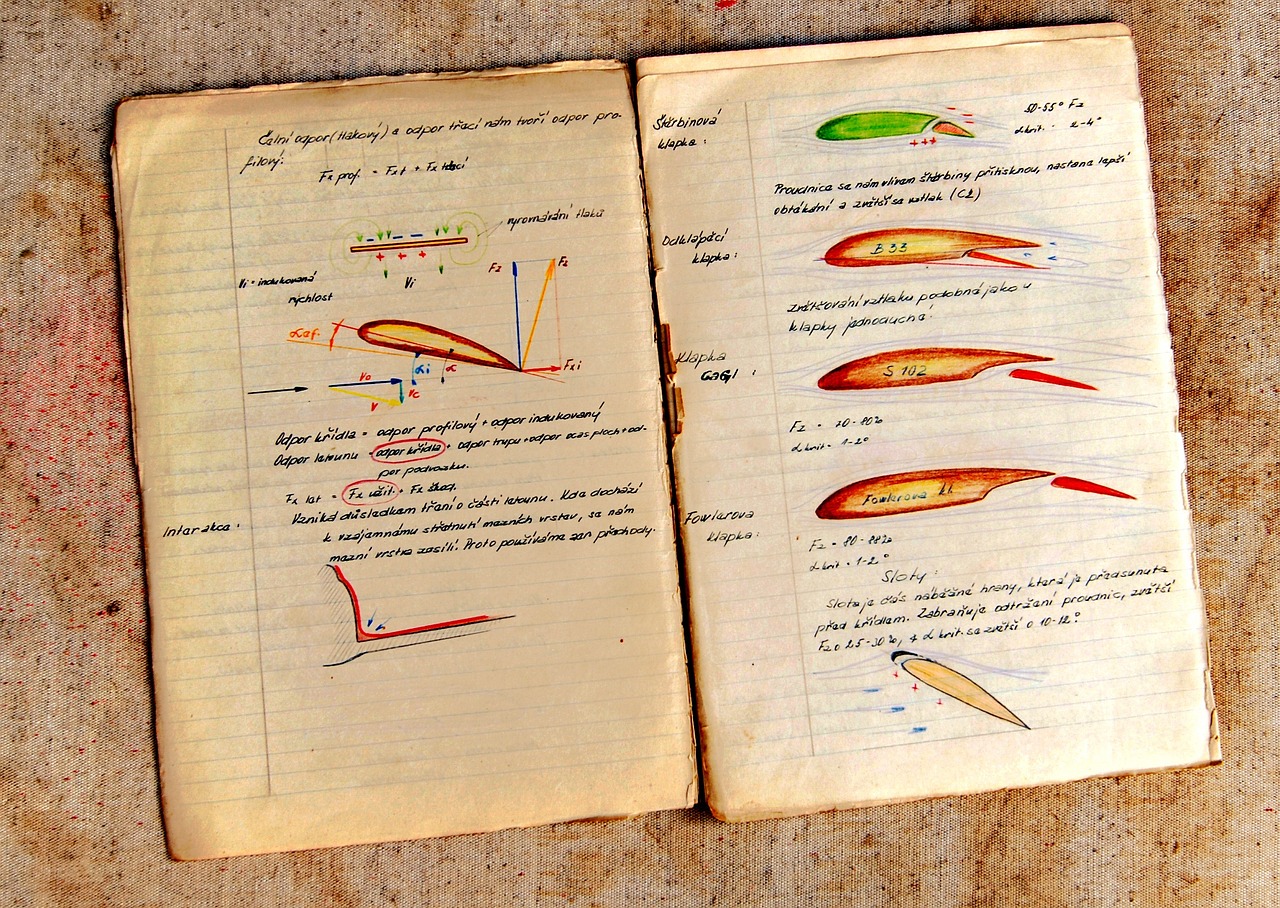 Čelní odpor (tlakový) a odpor třecí nám tvoří odpor pro-
filový:
Fx prof. = Fxt + Fx třecí
vyrovnávání tlaků
Vi = indukovaná
rychlost
Vi
Fz
Fz
αef.
αi
α
Fxi
Vo
Vc
V
Odpor křídla = odpor profilový + odpor indukovaný
Odpor letounu = odpor křídla + odpor trupu + odpor ocas ploch + od-
por podvozku.
Fx let = Fx užit. + Fx škod.
Interakce:
Vzniká důsledkem tření o části letounu. Kde dochází
k vzájemnému střetnutí mezních vrstev, se nám
mezní vrstva zesílí. Proto používáme zan přechody.
Štěrbinová
klapka:
50-55° Fz
αkrit. 2-4°
Proudnice se nám vlivem štěrbiny přitisknou, nastane lepší
obtékání a zvětší se vztlak (Cz)
Odklápěcí
klapka:
B 33
zvětšování vztlaku podobné jako u
klapky jednoduché.
Klapka
GaGl :
S 102
Fz = 70-80%
αkrit = 1-2°
Fowlerova
klapka:
Fowlerova kl.
Fz = 80-88%
αkrit = 1-2°
Sloty:
Slot je čás náběžné hrany, která je předsunuta
před křídlem. Zabraňuje odtržení proudnic, zvětší
Fz o 25-30%, a αkrit. se zvětší o 10-12°.